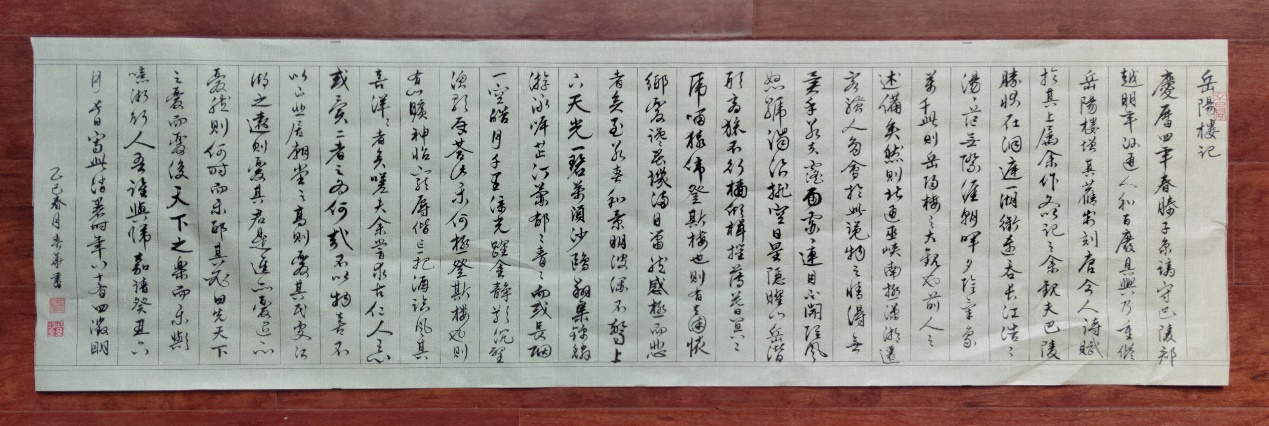 岳陽樓记
慶曆四年春滕子京謫守巴陵郡
越明年政通人和百廢具興乃重修
岳陽樓增其舊制刻唐今人詩賦
於其上属余作文以記之余觀夫巴陵
勝状在洞庭一湖銜遠吞長江浩〻
湯〻橫無際涯朝暉夕陰氣象
萬千此則岳陽樓之大觀也前人之
述備矣然則北通巫峡南極瀟湘遷
客騷人多會於此覽物之情得無
異乎若夫霪雨霏〻連月不開陰風
怒號濁浪排空日星隱曜山岳潛
形商旅不行檣傾楫摧薄暮冥〻
虎嘯猿啼登斯樓也則有去國懷
鄉憂讒畏譏滿目蕭然感極而悲
者矣至若春和景明波瀾不驚上
下天光一碧萬頃沙鷗翔集錦鱗
游泳岸芷汀蘭郁〻青〻而或長烟
一空皓月千里浮光躍金静影沉璧
漁歌互答此樂何極登斯樓也則
有心曠神怡寵辱偕忘把酒臨風其
喜洋〻者矣嗟夫余嘗求古仁人之心
或異二者之為何哉不以物喜不
以己悲居廟堂之高則憂其民處江
湖之遠則憂其君是進亦憂退亦
憂然則何時而樂耶其必曰先天下
之憂而憂後天下之樂而樂歟
噫微斯人吾誰與歸 嘉祐癸丑六
月 書寫此 時年八十有四 明
乙巳春月 書